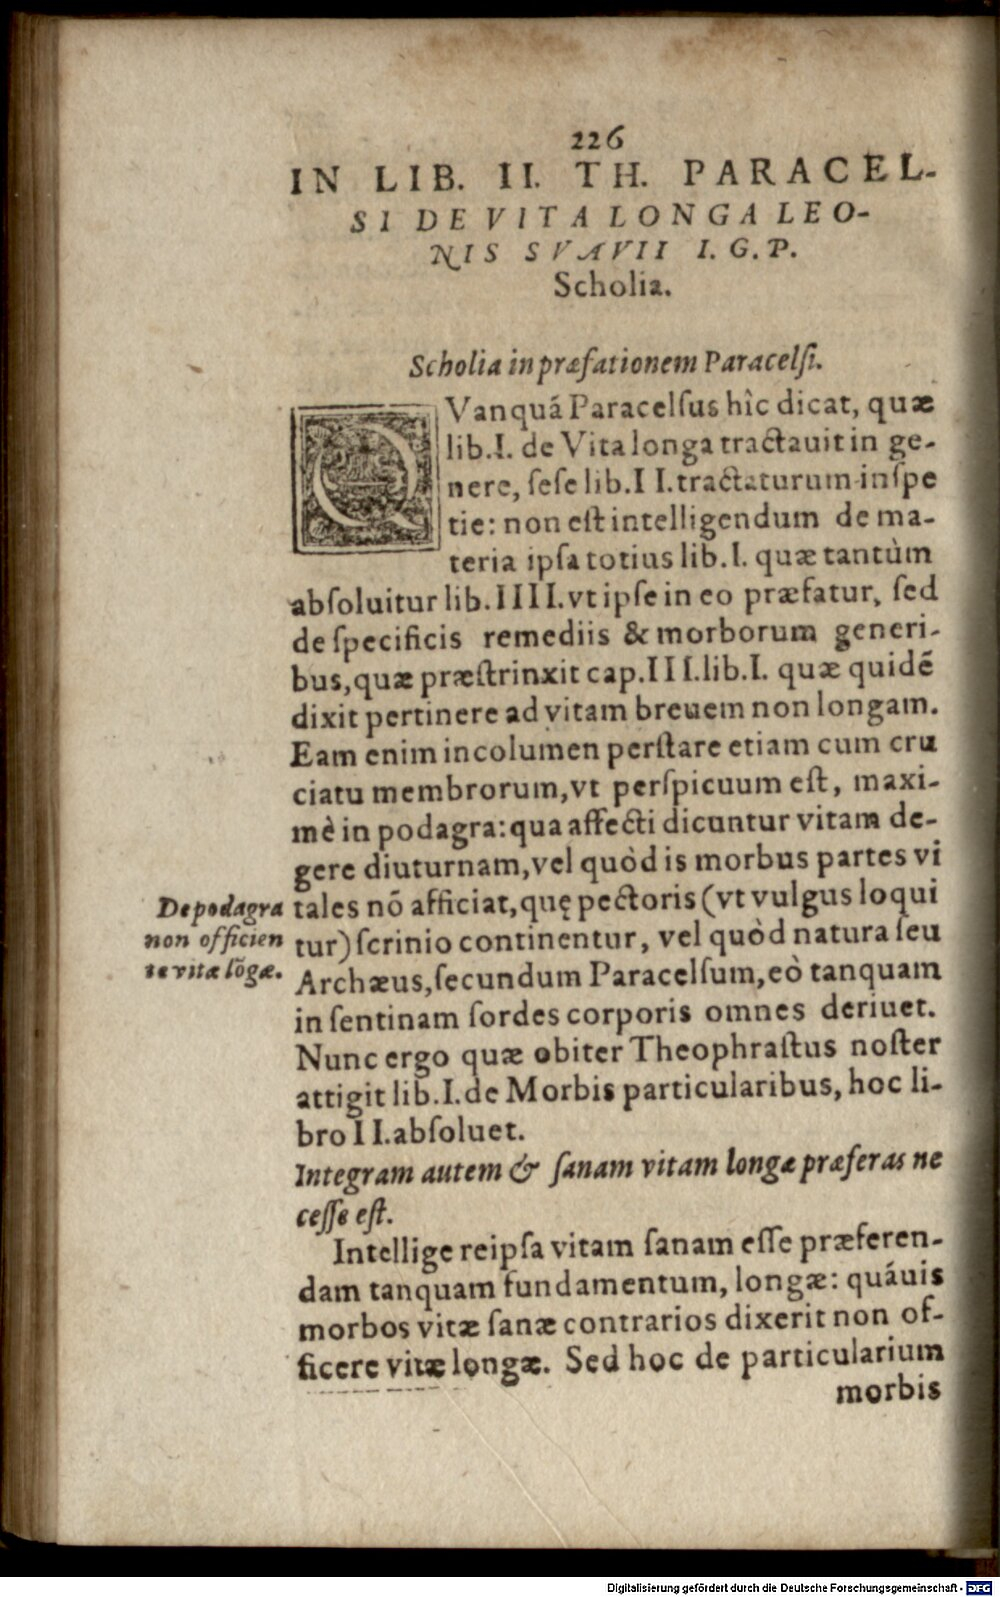 226
IN LIB. II. TH. PARACEL-
SI DE VITA LONGA LEO-
NIS SVAVII I. G. P.
Scholia.
Scholia in præfationem Paracelſi.
QVanquã Paracelſus hîc dicat, quæ
lib. I. de Vita longa tractauit in ge-
nere, ſeſe lib. II. tractaturum in ſpe
tie: non eſt intelligendum de ma-
teria ipſa totius lib. I. quæ tantùm
abſoluitur lib. IIII. vt ipſe in eo præfatur, ſed
de ſpecificis remediis & morborum generi-
bus, quæ præſtrinxit cap. III. lib. I. quæ quidẽ
dixit pertinere ad vitam breuem non longam.
Eam enim incolumen perſtare etiam cum cru
ciatu membrorum, vt perſpicuum eſt, maxi-
mè in podagra: qua affecti dicuntur vitam de-
gere diuturnam, vel quòd is morbus partes vi
tales nõ afficiat, quę pectoris (vt vulgus loqui
tur) ſcrinio continentur, vel quòd natura ſeu
Archæus, ſecundum Paracelſum, eò tanquam
in ſentinam ſordes corporis omnes deriuet.
Nunc ergo quæ obiter Theophraſtus noſter
attigit lib. I. de Morbis particularibus, hoc li-
bro II. abſoluet.
De podagra
non officien
te vitæ lõgæ.
Integram autem & ſanam vitam longæ præferas ne
ceſſe eſt.
Intellige reipſa vitam ſanam eſſe præferen-
dam tanquam fundamentum, longæ: quáuis
morbos vitæ ſanæ contrarios dixerit non of-
ficere vitæ longæ. Sed hoc de particularium
morbis
Digitalisierung gefördert durch die Deutsche Forschungsgemeinschaft - DFG